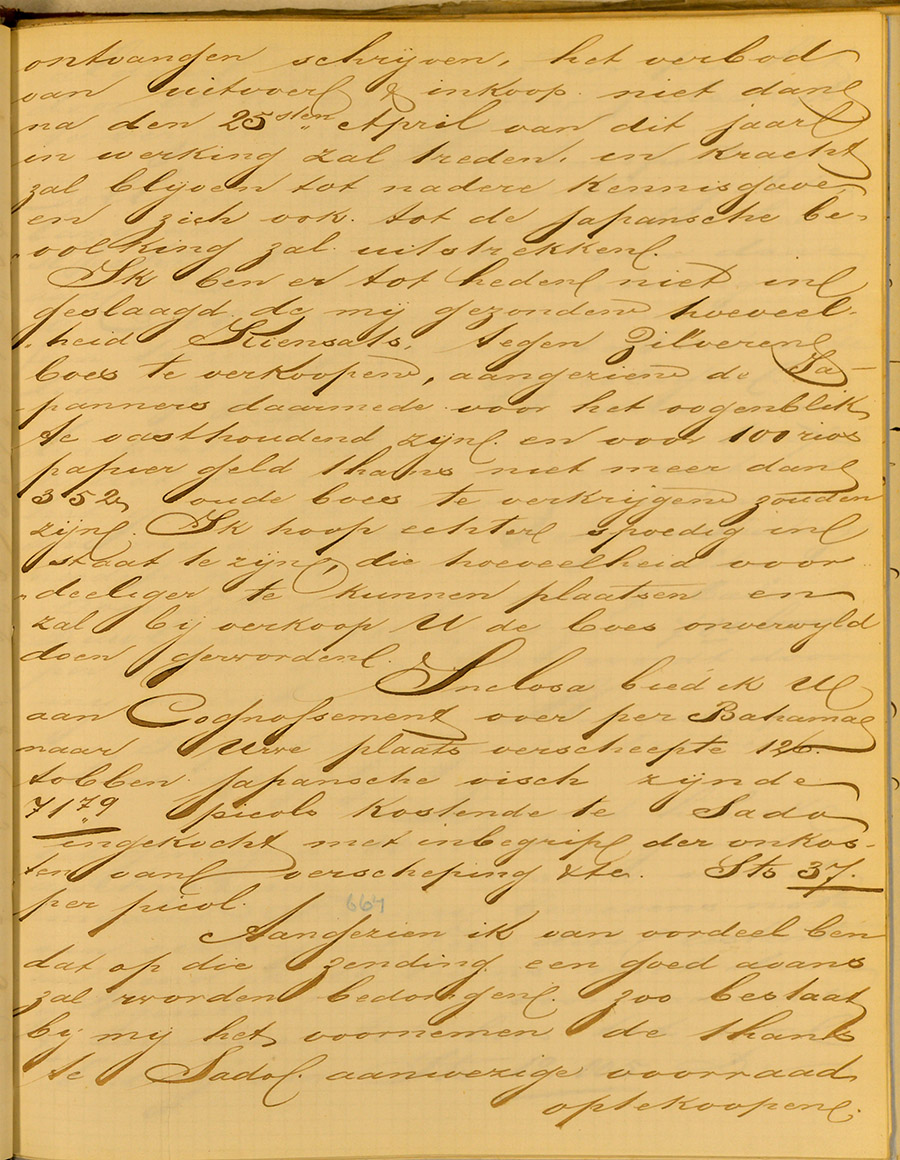 ontvangen schrijven, het verbod
van uitvoer & inkoop niet dan
na den 25sten April van dit jaar
in werking zal treden, in kracht
zal blijven tot nadere kennisgave,
en zich ook tot de Japansche be-
volking zal uitstrekken.
Ik ben er tot heden niet in
geslaagd de mij gezonden hoeveel-
heid Kiensats, tegen Zilveren
boes te verkoopen, aangezien de Ja-
panners daarmede voor het oogenblik
te vasthoudend zijn en voor 100 rios
papier geld thans niet meer dan
352 oude boes te verkrijgen zouden
zijn. Ik hoop echter spoedig in
staat te zijn, die hoeveelheid voor
deeliger te kunnen plaatsen en
zal bij verkoop U de boes onverwyld
doen geworden.
Inclosa bied ik U
aan Cognossement over per Bahama
naar Uwe plaats verscheepte 126.
tobben Japansche visch zijnde
71 79 picols kostende te Sado
ingekocht met inbegrip der onkos-
ten van verscheping &te. Sts 37.
per picol.
664
Aangezien ik van oordeel ben
dat op die zending een goed avans
zal worden bedongen. zoo bestaat
bij mij het voornemen de thans
te Sado aanwezige voorraad
optekoopen.